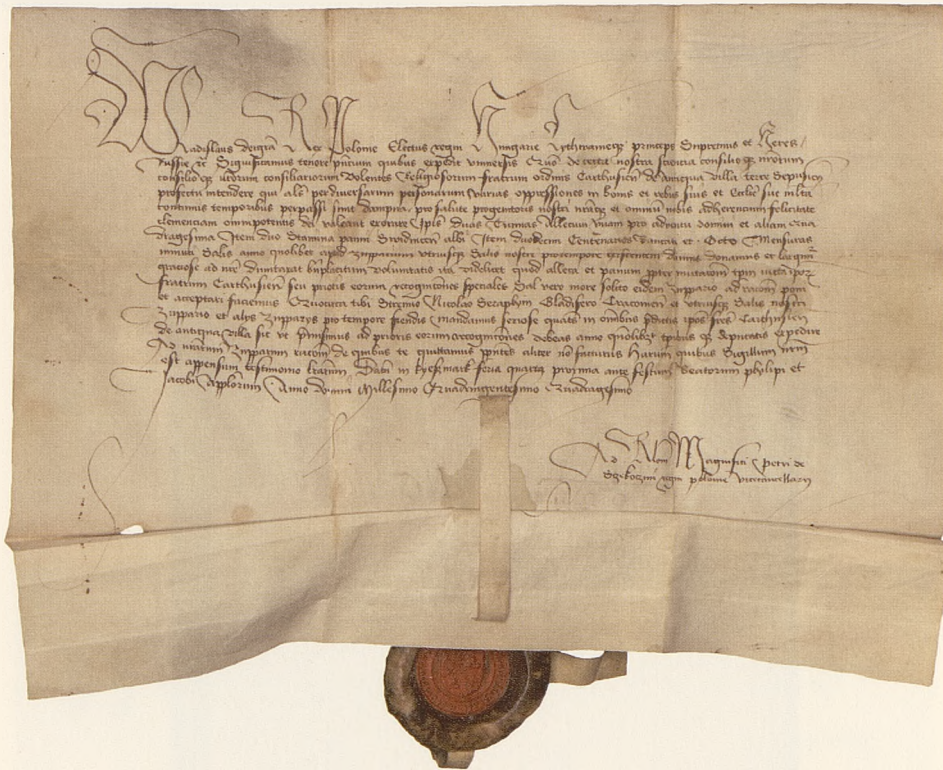 Wladislaus dei gra Rex Polonie Electus regni Hungarie Lythwanieque princeps Supremus et Heres
Russie etc Significamus tenore pntium quibus expedit vniversis Quo de certa nostra scientia
consilioque consiliariorum volentes Religiosorum fratrum ordinis Carthusien de antiqua villa terre
profectui intendere qui als per diversarum personarum varias oppressiones in bonis et rebus suis et Ecclie sue
continuis temporibus perpassi sunt dampna pro salute progenitorum nostri et omnium nobis adherencium felicitate
clemenciam omnipotentis dei valeant exorare Ipsis duas allecum vnam pro adventu domini et aliam Qua
dragesima Item duo stamina panni albi Item duodecim Centenarios et Octo Mensuras
minuti Salis anno quolibet apud zupparium vtriusque Salis nostri pro tempore existentem damus donamus et
graciose ad nre dumtaxat bnplacitum voluntatis ita videlicet quod alleca et panum
fratrum Carthusien seu prioris eorum recogniciones speciales Sal vero more solito eidem zuppario ad racoem poni
et acceptari faciemus Quocirca tibi Strenuo Nicolao Seraphyn Gladifero Cracovien et vtriusque Salis nostri
zuppario et alys zupparys pro tempore fiendis Mandamus seriose in omnibus ipos fres Carthusien
de antiqua villa sic ut premisimus ad prioris eorum recogniciones debeas anno quolibet expedire
Ad nram zupparum de quibus te quittamus pntes aliter no facturus Harum quibus Sigillum nrm
est appensum testimonio lrarum Datm in Kyeszmark feria quarta proxima ante festum Beatorum philipi et
Jacobi Applorum Anno domini Millesimo Quadringentesimo Quadragesimo
Ad Rlon Magnifici Petri de
regni polonie vicecancellarii